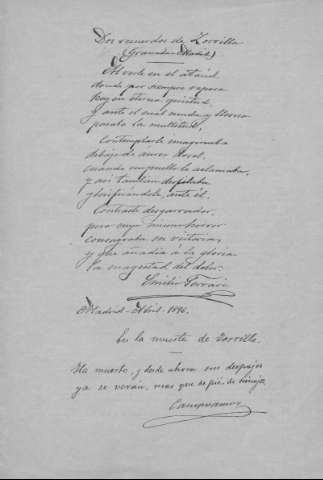 Dos recuerdos de Zorrilla
(Granada - Madrid)
Al verle en el ataúd
donde por siempre reposa
hoy en eterna quietud,
y ante el cual muda y llorosa
pasaba la multitud,
Contemplarle imaginaba
debajo de áureo dosel,
cuando un pueblo le aclamaba,
y así también desfilaba
glorificándole, ante él.
Contraste desgarrador,
pero cuyo mismo horror
consagraba su victoria,
y que añadía á la gloria
la magestad del dolor.
Emilio Ferrari
Madrid - Abril - 1896.
En la muerte de Zorrilla.
Ha muerto, y desde ahora sus despojos
ya se verán, mas que de pié, de hinojos
Campoamor